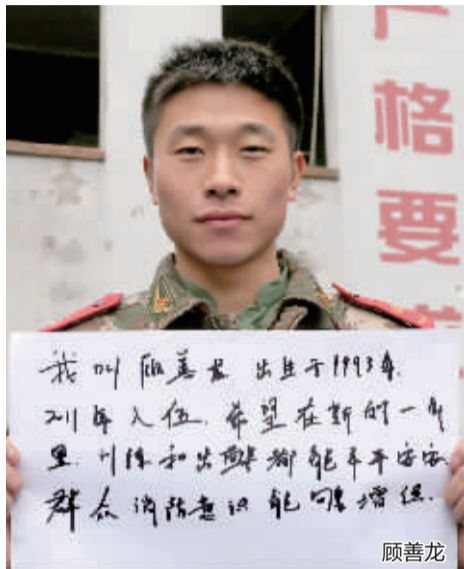 格
要
我叫顾善龙 出生于1993年.
2011年入伍.希望在新的一年
里.训练和出警都能平平安安
群众消防意识能够增强.
顾善龙